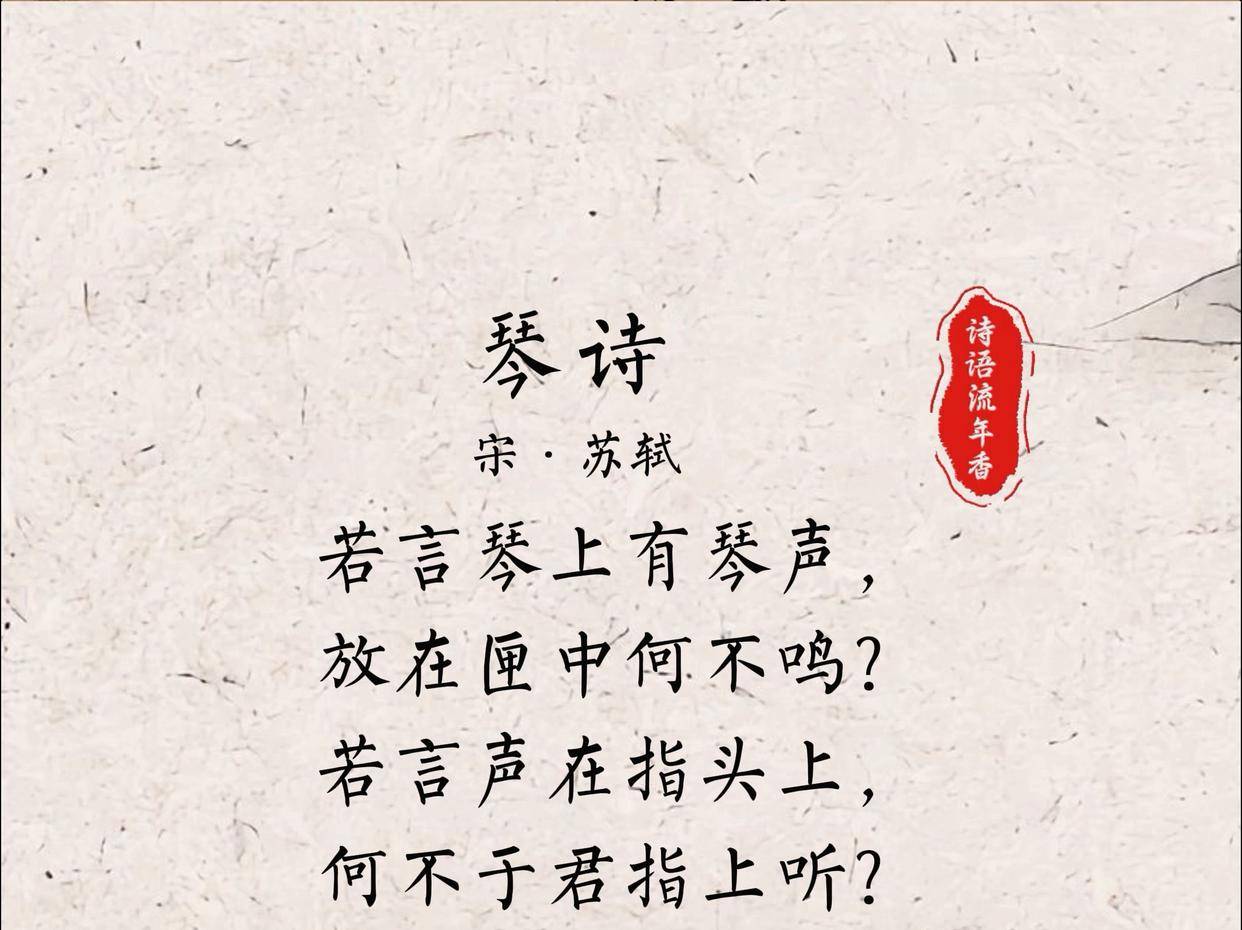 琴诗
宋·苏轼
若言琴上有琴声，
放在匣中何不鸣？
若言声在指头上，
何不于君指上听？
诗语流年香